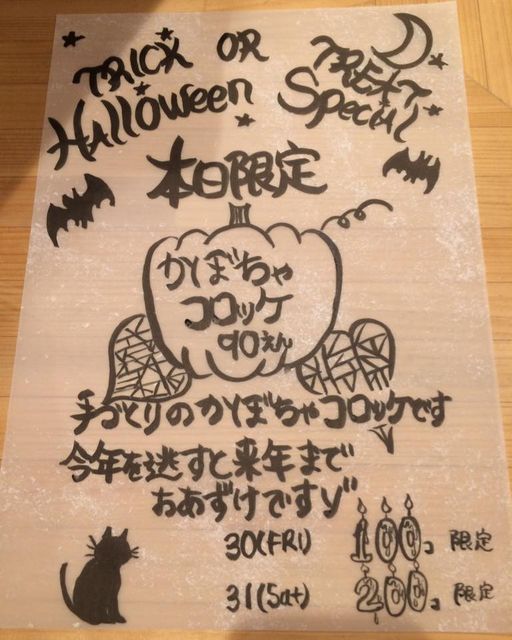 TRICK OR TREAT
Halloween Special
本日限定
かぼちゃ
コロッケ
90えん
手づくりのかぼちゃコロッケです
今年を逃すと来年まで
おあずけですゾ
30(FRI) 100コ 限定
31(Sat) 200コ 限定